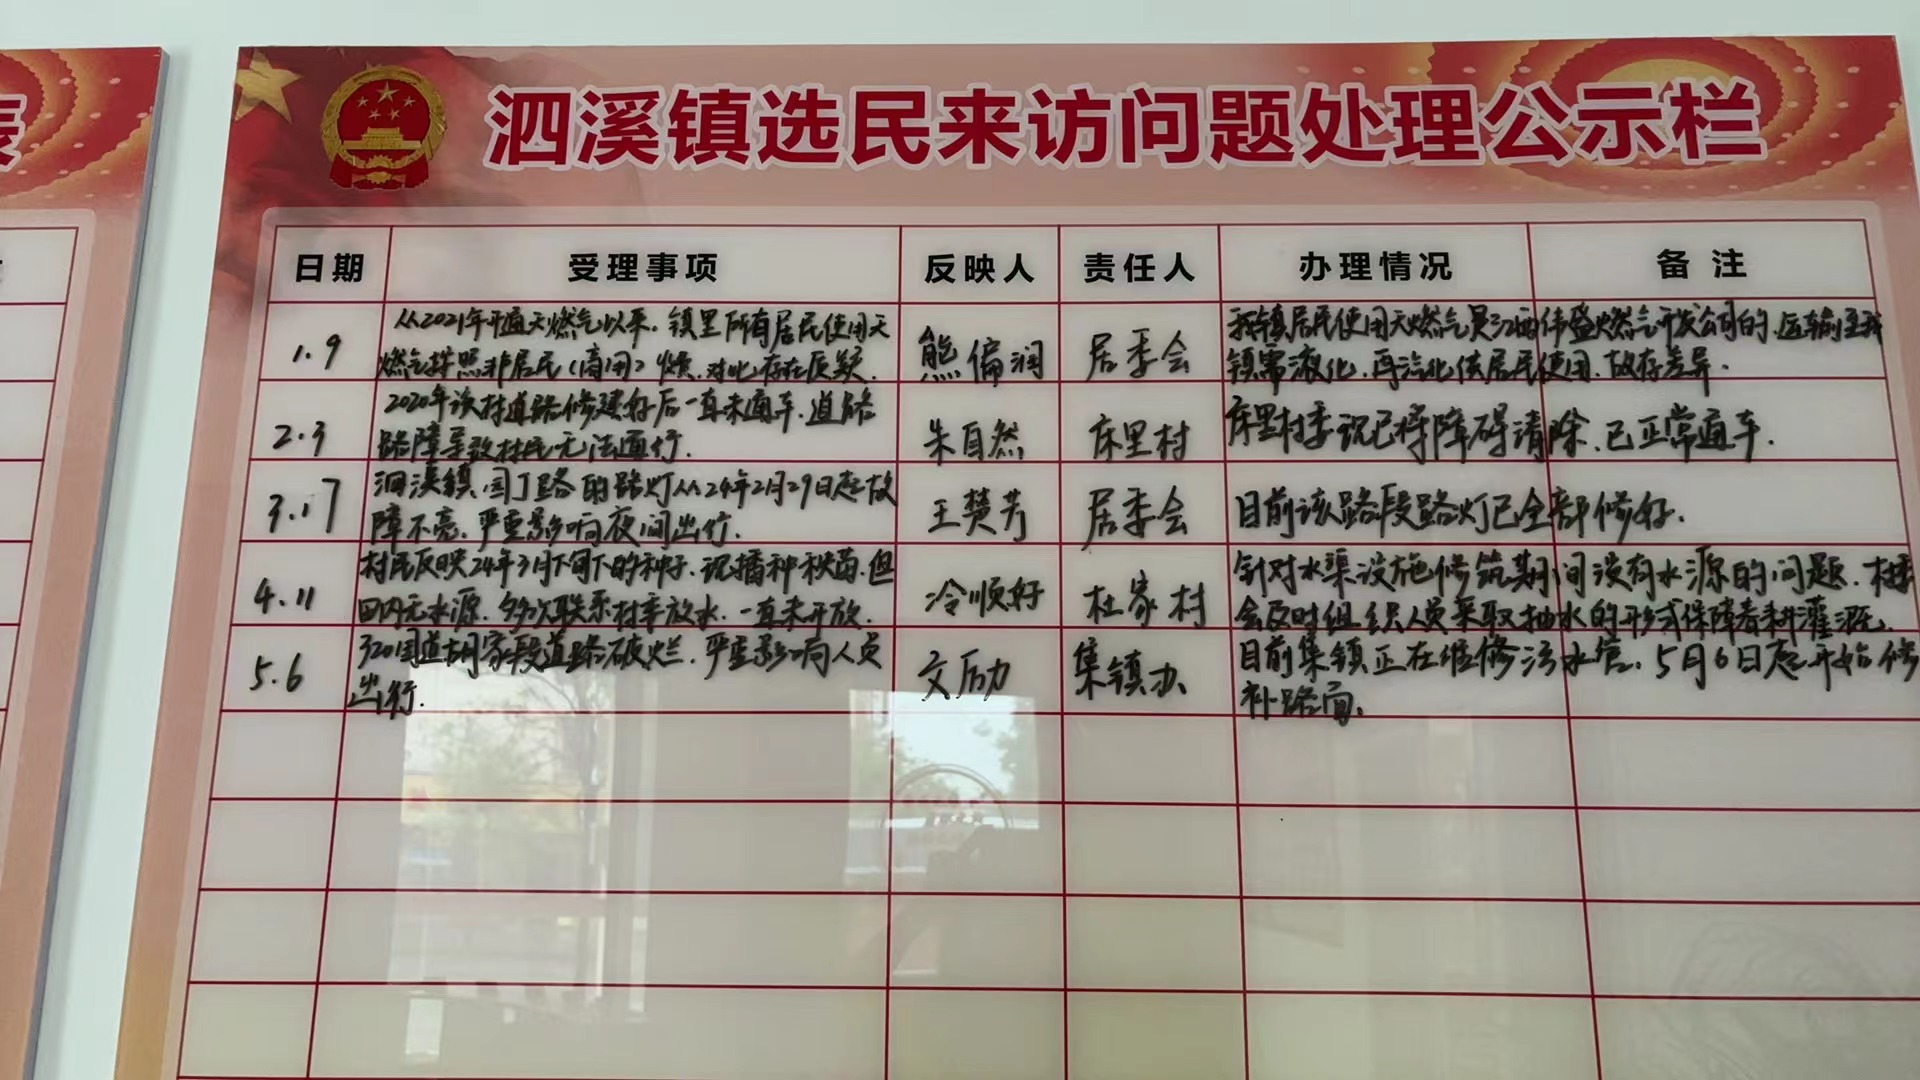 泗溪镇选民来访问题处理公示栏
日期 受理事项 反映人 责任人 办理情况 备注
1.9
从2021年开通天燃气以来，镇里所有居民使用天
燃气按照非居民（商用）收费，对此存在质疑．
熊偏润
居委会
我镇居民使用天燃气是江西伟盛燃气开发公司的，运输至我
镇需液化，再汽化供居民使用，故存差异．
2.3
2020年该村道路修建好后一直未通车，道路
路障导致村民无法通行．
朱自然
床里村
床里村委说已将障碍清除，已正常通车．
3.17
泗溪镇园丁路的路灯从24年2月29日起故
障不亮，严重影响夜间出行．
王赞芳
居委会
目前该路段路灯已全部修好．
4.11
村民反映24年3月下旬下的种子，现播种秧苗，但
田内无水源，多次联系村委放水，一直未开放．
冷顺好
杜家村
针对水渠设施修筑期间没有水源的问题，村委
会及时组织人员采取抽水的形式保障春耕灌溉．
5.6
320国道胡家段道路破烂，严重影响人员
出行．
文历力
集镇办
目前集镇正在维修污水管，5月6日起开始修
补路面．